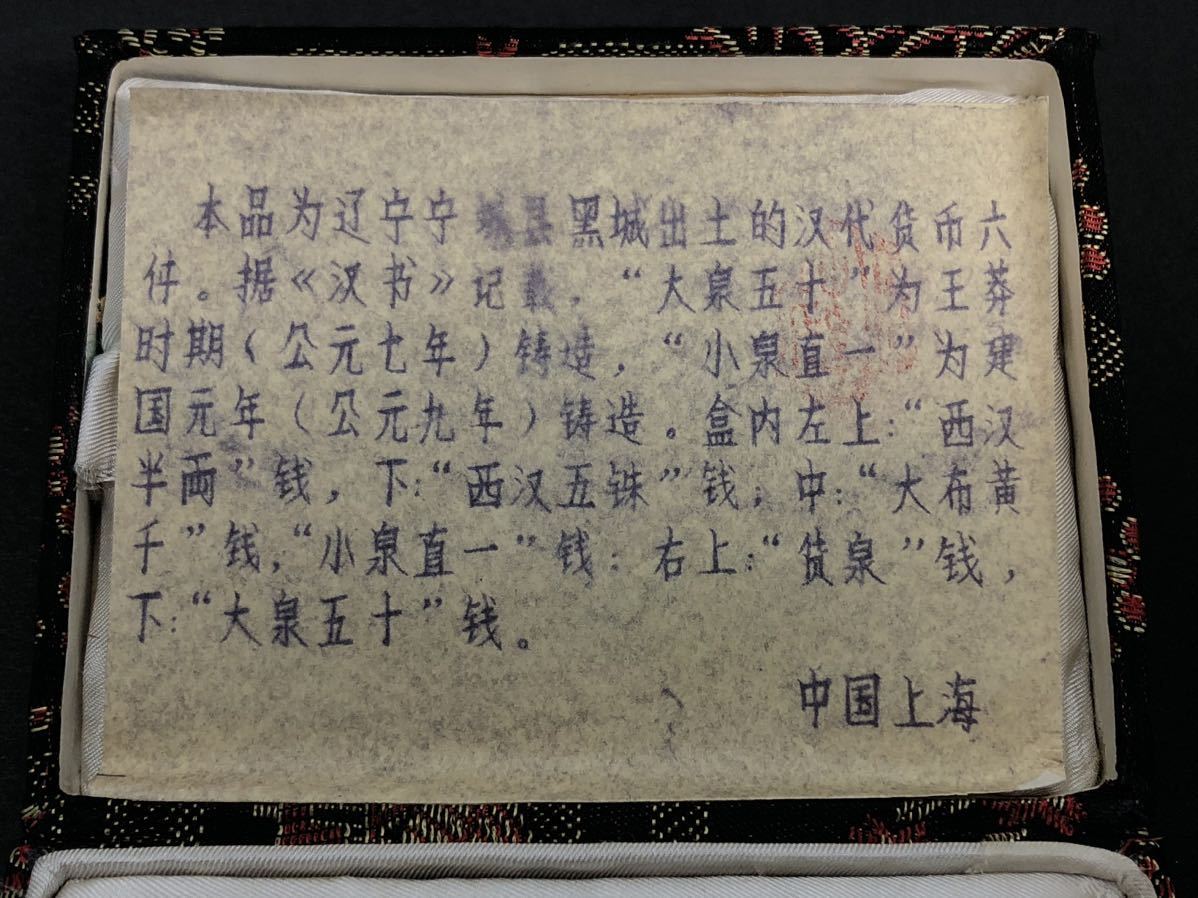 本品为辽宁宁城县黑城出土的汉代货币六
件。据《汉书》记载，“大泉五十”为王莽
时期（公元七年）铸造，“小泉直一”为建
国元年（公元九年）铸造。盒内左上：“西汉
半两”钱，下：“西汉五铢”钱；中：“大布黄
千”钱，“小泉直一”钱：右上：“货泉”钱，
下：“大泉五十”钱。
中国上海